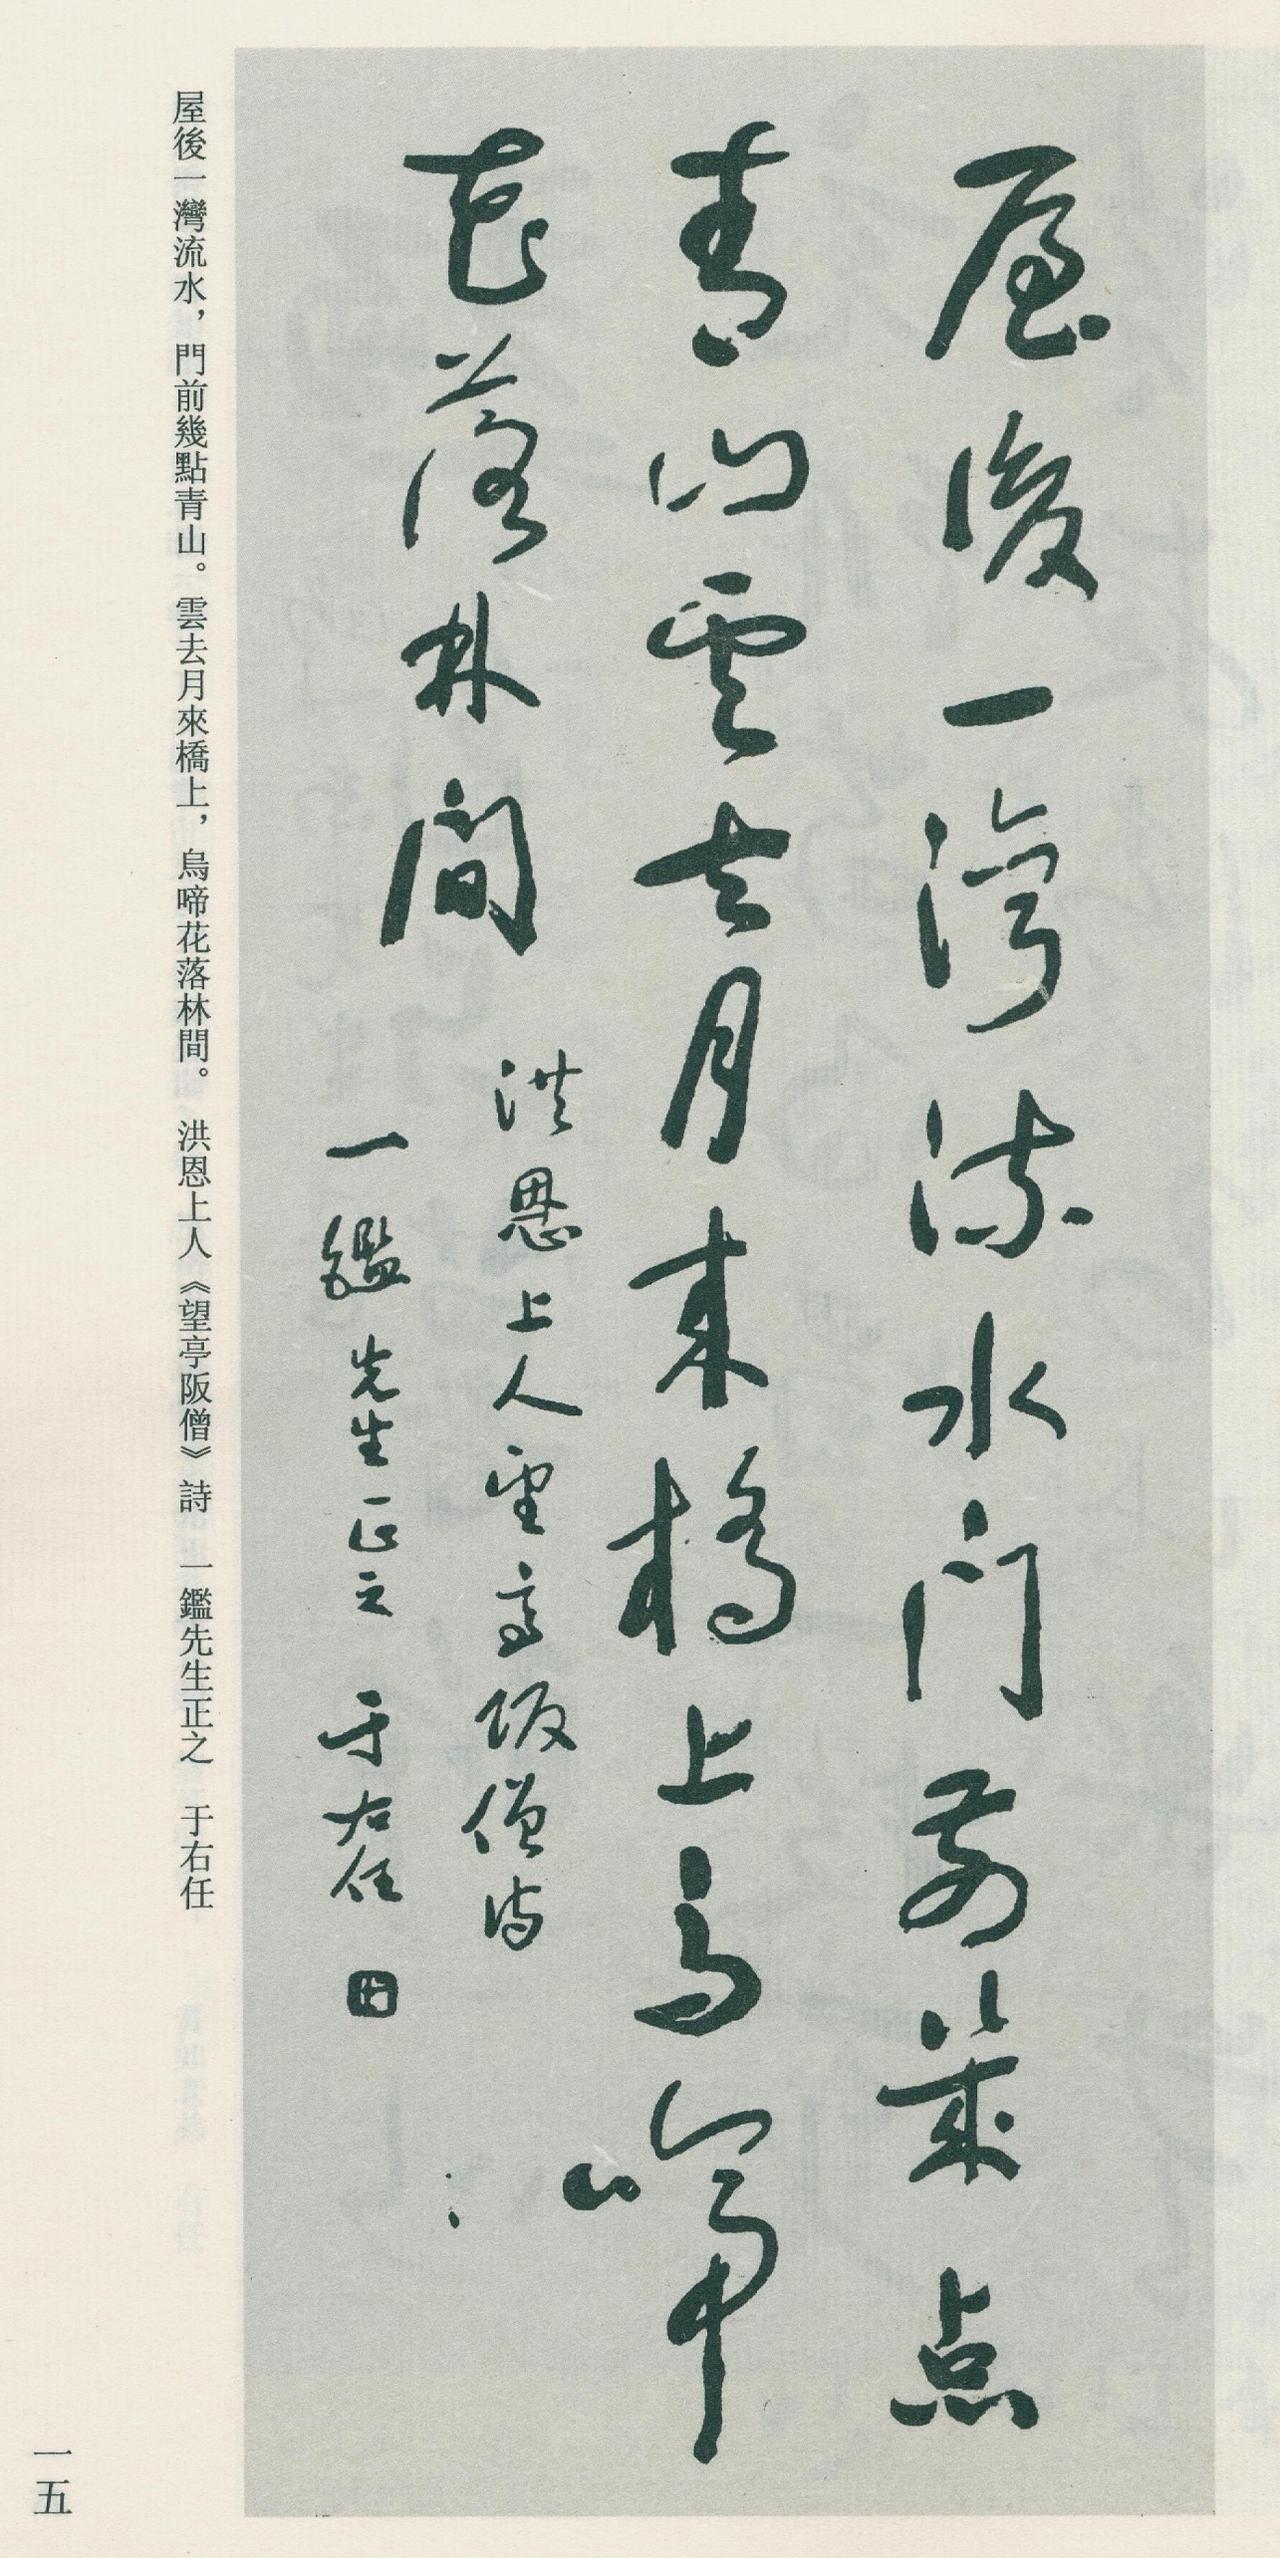 屋後一灣流水门前幾点
青山雲去月来橋上鳥啼
花落林間
洪恩上人望亭阪僧诗
一鑑先生正之 于右任
屋後一灣流水，門前幾點青山。雲去月來橋上，鳥啼花落林間。 洪恩上人《望亭阪僧》詩 一鑑先生正之 于右任
一五